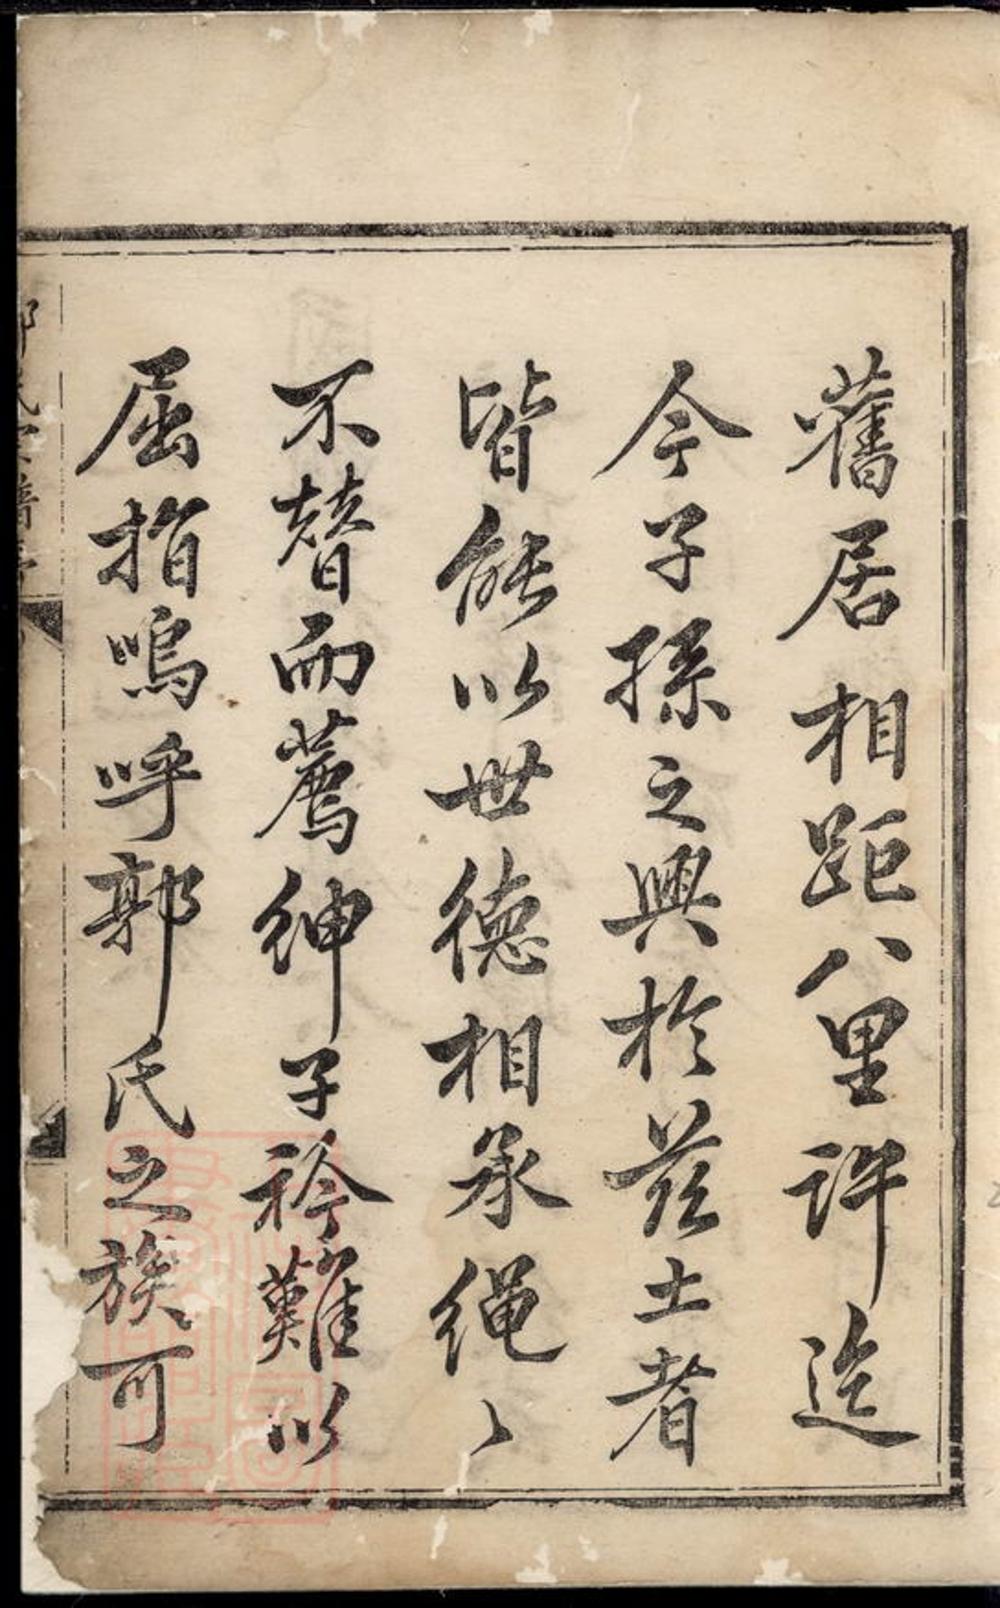 舊居相距八里許迄
今子孫之興於茲土者
皆能以世德相承繩〻
不替而薦紳子衿難以
屈指嗚呼郭氏之族可